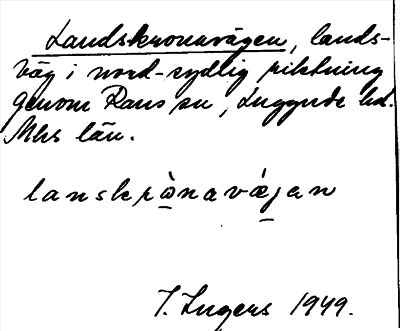 Landskronavägen, lands-
väg i nord-sydlig riktning
genom Raus sn, Luggude hd.
Mhs län.
lanskrò̠navǽ̠gan
I. Ingers 1949.